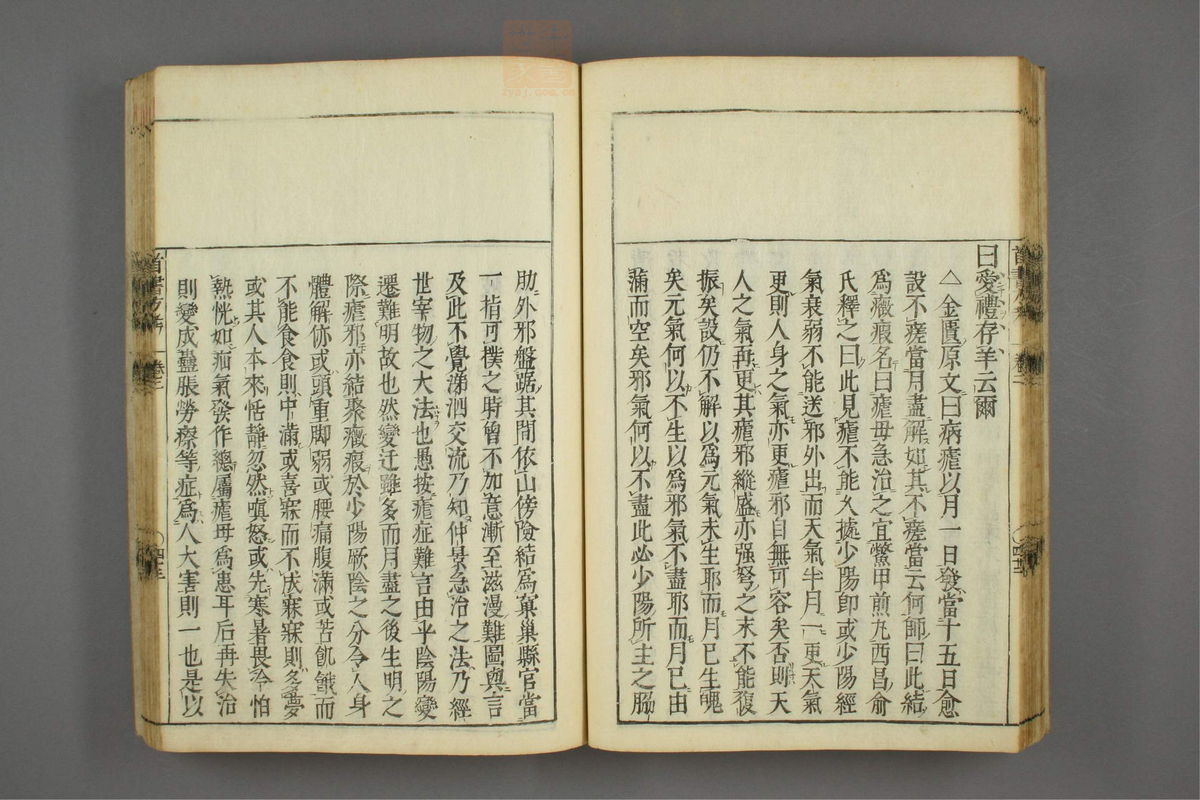 曰愛禮存羊云爾
△金匱原文曰病瘧以月一日發當十五日愈
設不瘥當月盡解如其不瘥當云何師曰此結
為癥瘕名曰瘧母急治之宜鱉甲煎丸西昌俞
氏釋之曰此見瘧不能久據少陽卽或少陽經
氣衰弱不能送邪外出而天氣半月一更天氣
更則人身之氣亦更瘧邪自無可容矣否則天
人之氣再更其瘧邪縱盛亦强弩之末不能復
振矣設仍不解以為元氣未生耶而月已生魄
矣元氣何以不生以為邪氣不盡耶而月已由
滿而空矣邪氣何以不盡此必少陽所主之脇
肋外邪盤踞其間依山傍險結為窠巢縣官當
一指可撲之時曾不加意漸至滋漫難圖輿言
及此不覺涕泗交流乃知仲景急治之法乃經
世宰物之大法也愚按瘧症難言由乎陰陽變
遷難明故也然變迁雖多而月盡之後生明之
際瘧邪亦結聚癥瘕於少陽厥陰之分令人身
體解㑊或頭重脚弱或腰痛腹滿或苦飢餓而
不能食食則中滿或喜寐而不成寐寐則多夢
或其人本來恬靜忽然嗔怒或先寒暑畏今怕
熱恍如疝氣發作總屬瘧母為患耳后再失治
則變成蠱脹勞瘵等症為人大害則一也是以